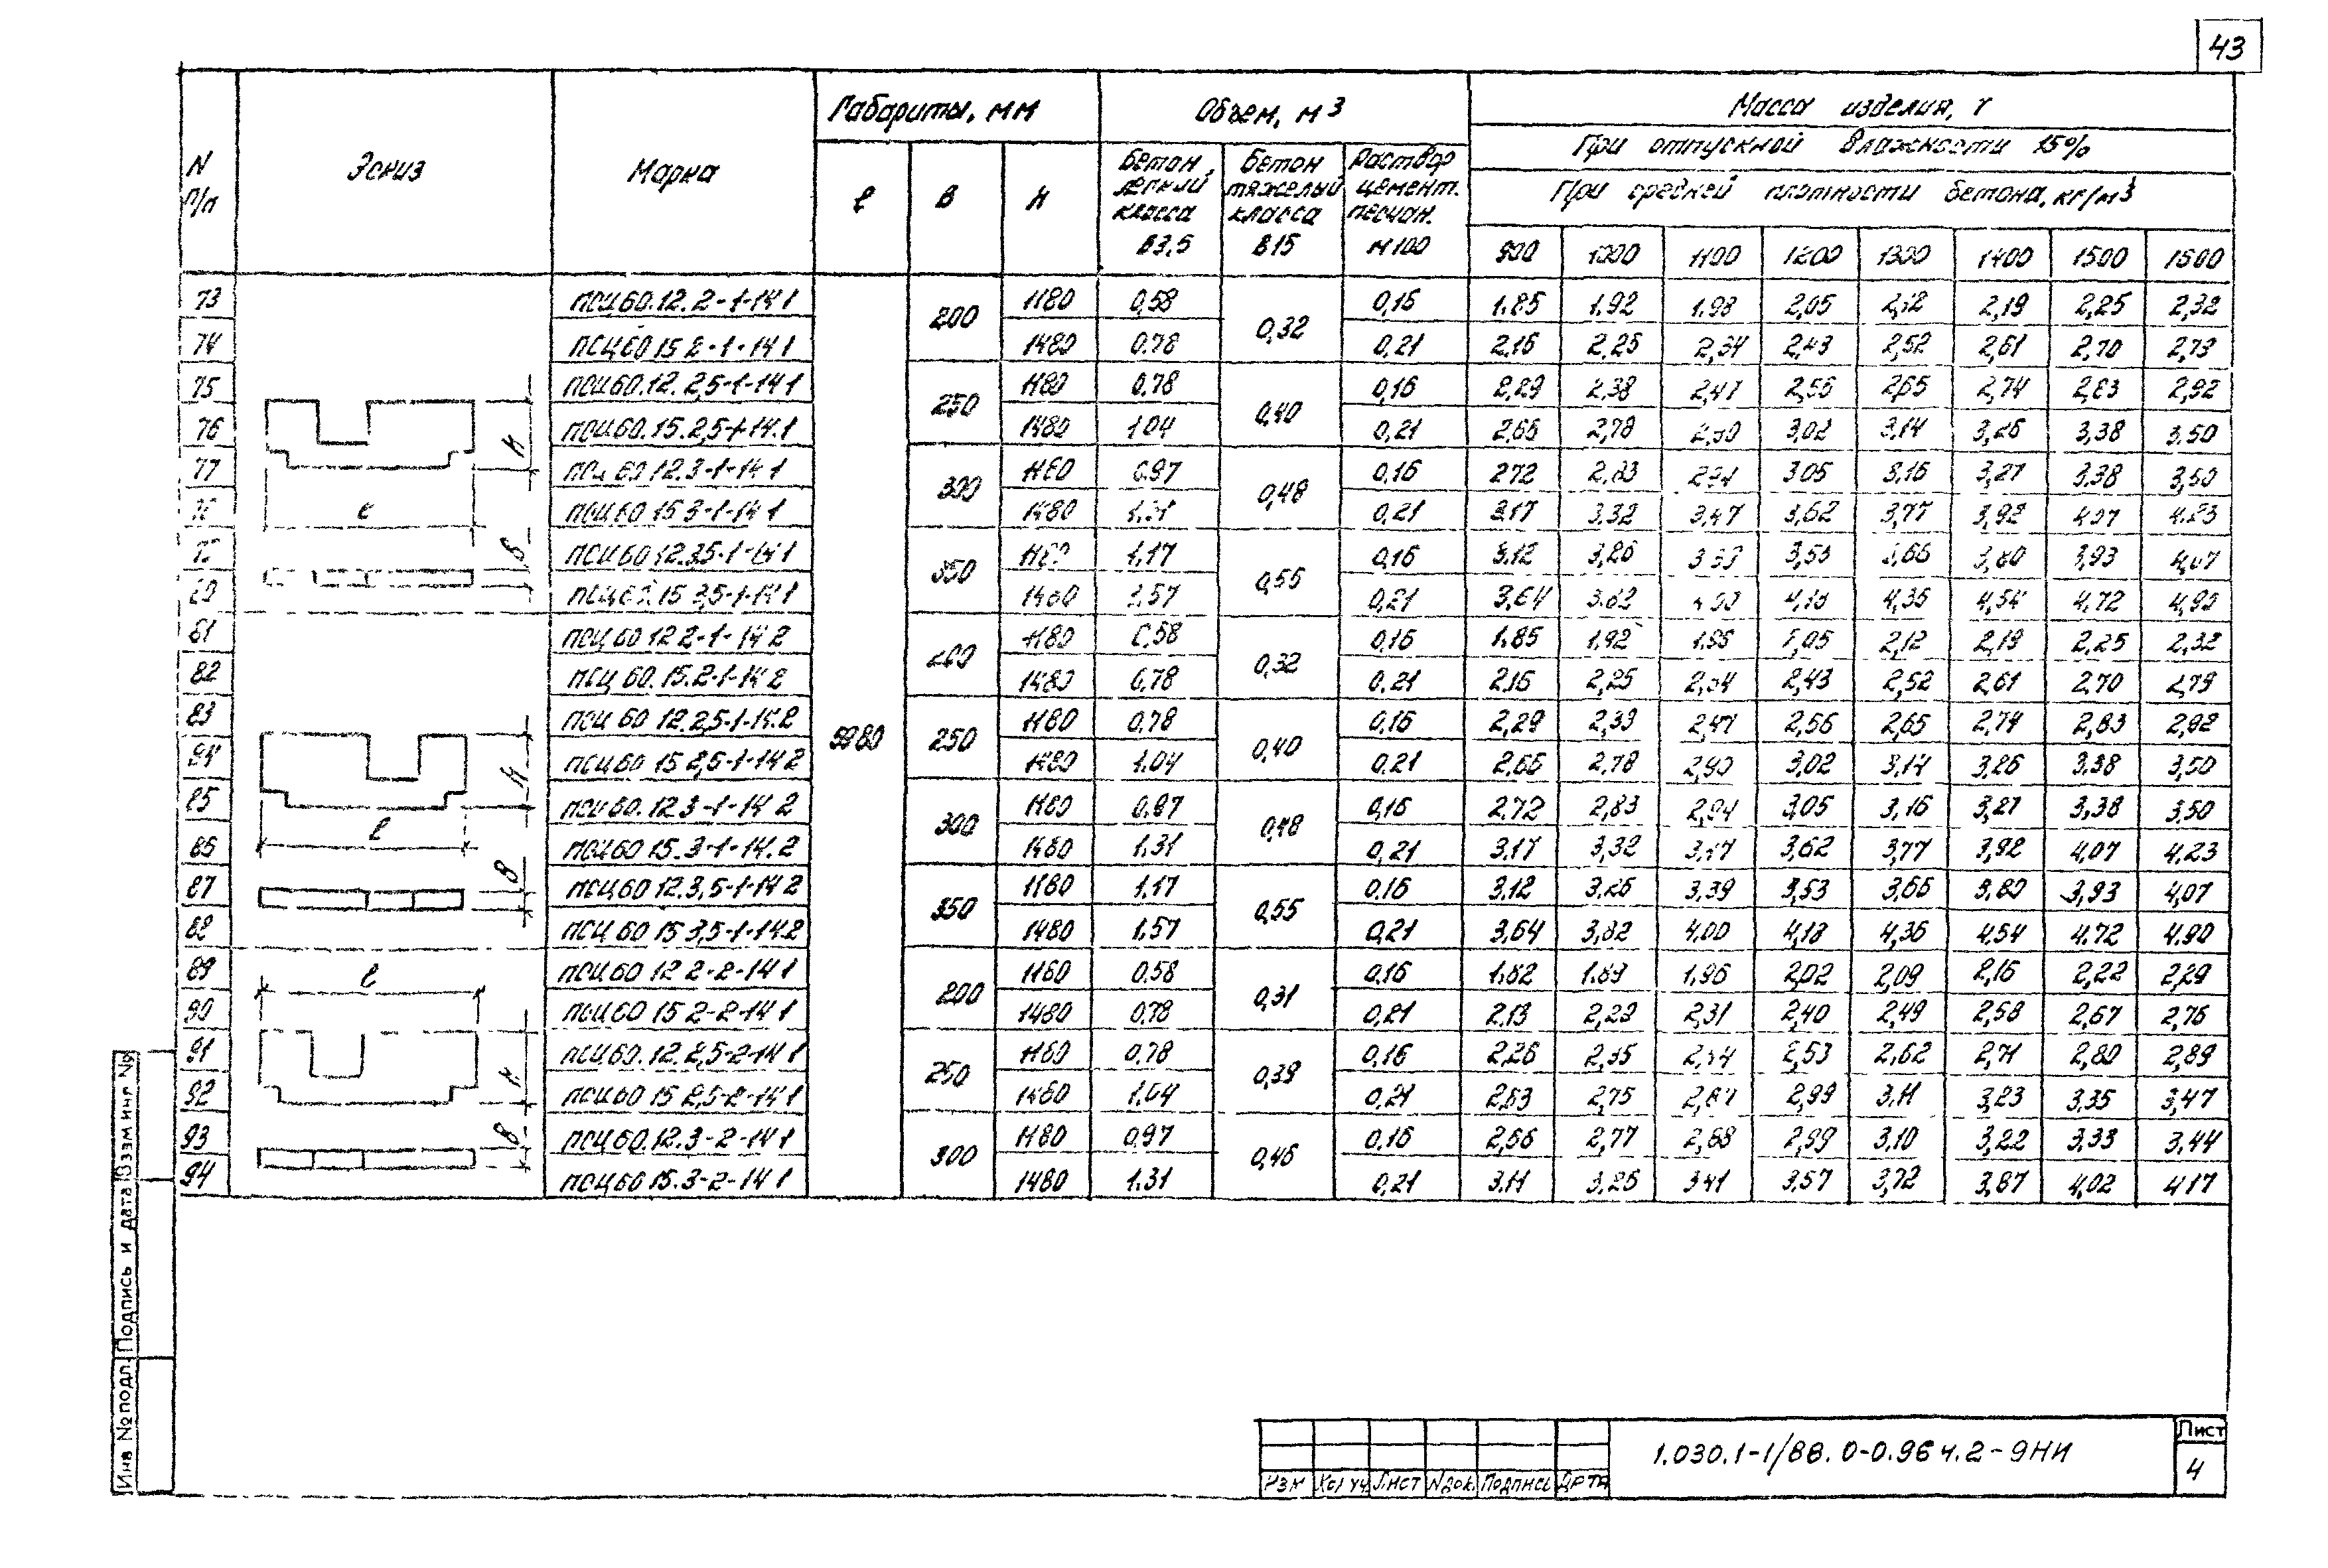 43
N п/п | Эскиз | Марка | Габариты, мм | Объем, м3 | Масса изделия, т
При отпускной влажности 15%
При средней плотности бетона, кг/м3
ℓ | В | Н | Бетон легкий класса В3,5 | Бетон тяжелый класса В15 | Раствор цемент. песчан. М100 | 900 | 1000 | 1100 | 1200 | 1300 | 1400 | 1500 | 1600
73 | ПСЦ60.12.2-1-14 1 | 200 | 1180 | 0,58 | 0,32 | 0,16 | 1.85 | 1.92 | 1.98 | 2,05 | 2,12 | 2,19 | 2,25 | 2,32
74 | ПСЦ60 15 2-1-14 1 | 1480 | 0.78 | 0,21 | 2,16 | 2,25 | 2,34 | 2,43 | 2,52 | 2,61 | 2,70 | 2,79
75 | ПСЦ60.12.2,5-1-14 1 | 250 | 1180 | 0,78 | 0,40 | 0,16 | 2,29 | 2,38 | 2,47 | 2,56 | 2,65 | 2,74 | 2,83 | 2,92
76 | ПСЦ60.15.2,5-1-14.1 | 1480 | 1.04 | 0,21 | 2,66 | 2,78 | 2,90 | 3,02 | 3,14 | 3,26 | 3,38 | 3,50
77 | ПСЦ 60 12.3-1-14 1 | 300 | 1180 | 0,97 | 0,48 | 0,16 | 2,72 | 2,83 | 2,94 | 3,05 | 3,16 | 3,27 | 3,38 | 3,50
ПСЦ60 15 3-1-14 1 | 1480 | 1.31 | 0,21 | 3,17 | 3,32 | 3,47 | 3,62 | 3,77 | 3,92 | 4,07 | 4,23
ПСЦ60 12.3,5-1-14 1 | 350 | 1180 | 1,17 | 0,55 | 0,16 | 3,12 | 3,26 | 3,39 | 3,53 | 3,66 | 3,80 | 3,93 | 4,07
ПСЦ60.15 3,5-1-14 1 | 1480 | 1,57 | 0,21 | 3,64 | 3,82 | 4,00 | 4,18 | 4,36 | 4,54 | 4,72 | 4,90
81 | ПСЦ 60 12 2-1-14 2 | 200 | 1180 | 0,58 | 0,32 | 0,16 | 1.85 | 1.92 | 1.98 | 2,05 | 2,12 | 2,19 | 2,25 | 2,32
82 | ПСЦ 60.15.2-1-14 2 | 1480 | 0,78 | 0,21 | 2,16 | 2,25 | 2,34 | 2,43 | 2,52 | 2,61 | 2,70 | 2,79
83 | ПСЦ 60 12.2,5-1-14.2 | 5980 | 250 | 1180 | 0,78 | 0,40 | 0,16 | 2,29 | 2,39 | 2,47 | 2,56 | 2,65 | 2,74 | 2,83 | 2,92
84 | ПСЦ60 15 2,5-1-14 2 | 1480 | 1.04 | 0,21 | 2,66 | 2,78 | 2,90 | 3,02 | 3,14 | 3,26 | 3,38 | 3,50
85 | ПСЦ60.12 3-1-14 2 | 300 | 1180 | 0,97 | 0,48 | 0,16 | 2,72 | 2,83 | 2,94 | 3,05 | 3,16 | 3,27 | 3,38 | 3,50
86 | ПСЦ60 15.3-1-14.2 | 1480 | 1.31 | 0,21 | 3,17 | 3,32 | 3,47 | 3,62 | 3,77 | 3,92 | 4,07 | 4,23
87 | ПСЦ60 12.3,5-1-14 2 | 350 | 1180 | 1,17 | 0,55 | 0,16 | 3,12 | 3,26 | 3,39 | 3,53 | 3,66 | 3,80 | 3,93 | 4,07
88 | ПСЦ 60 15 3,5-1-14.2 | 1480 | 1.57 | 0,21 | 3,64 | 3,82 | 4,00 | 4,18 | 4,36 | 4,54 | 4.72 | 4.90
89 | ПСЦ60 12 2-2-14 1 | 200 | 1180 | 0.58 | 0,31 | 0,16 | 1.82 | 1.89 | 1.96 | 2,02 | 2,09 | 2,16 | 2,22 | 2,29
90 | ПСЦ60 15 2-2-14 1 | 1480 | 0,78 | 0,21 | 2,13 | 2,23 | 2,31 | 2,40 | 2,49 | 2,58 | 2,67 | 2,76
91 | ПСЦ60.12.2,5-2-14 1 | 250 | 1180 | 0,78 | 0,39 | 0,16 | 2,26 | 2,35 | 2,44 | 2,53 | 2,62 | 2,71 | 2,80 | 2,89
92 | ПСЦ60 15 2,5-2-14 1 | 1480 | 1.04 | 0,21 | 2,63 | 2,75 | 2,87 | 2,99 | 3,11 | 3,23 | 3,35 | 3,47
93 | ПСЦ60.12.3-2-14 1 | 300 | 1180 | 0,97 | 0,46 | 0,16 | 2,66 | 2,77 | 2,88 | 2,99 | 3,10 | 3,22 | 3,33 | 3,44
94 | ПСЦ60 15.3-2-14 1 | 1480 | 1.31 | 0,21 | 3,11 | 3,26 | 3,41 | 3,57 | 3,72 | 3,87 | 4,02 | 4,17
Н
ℓ
В
Н
ℓ
В
ℓ
Н
В
Инв № подл. Подпись и дата Взам инв №
Изм Кол уч Лист №док. Подпись Дата
1.030.1-1/88.0-0.96 ч.2-9НИ
Лист
4